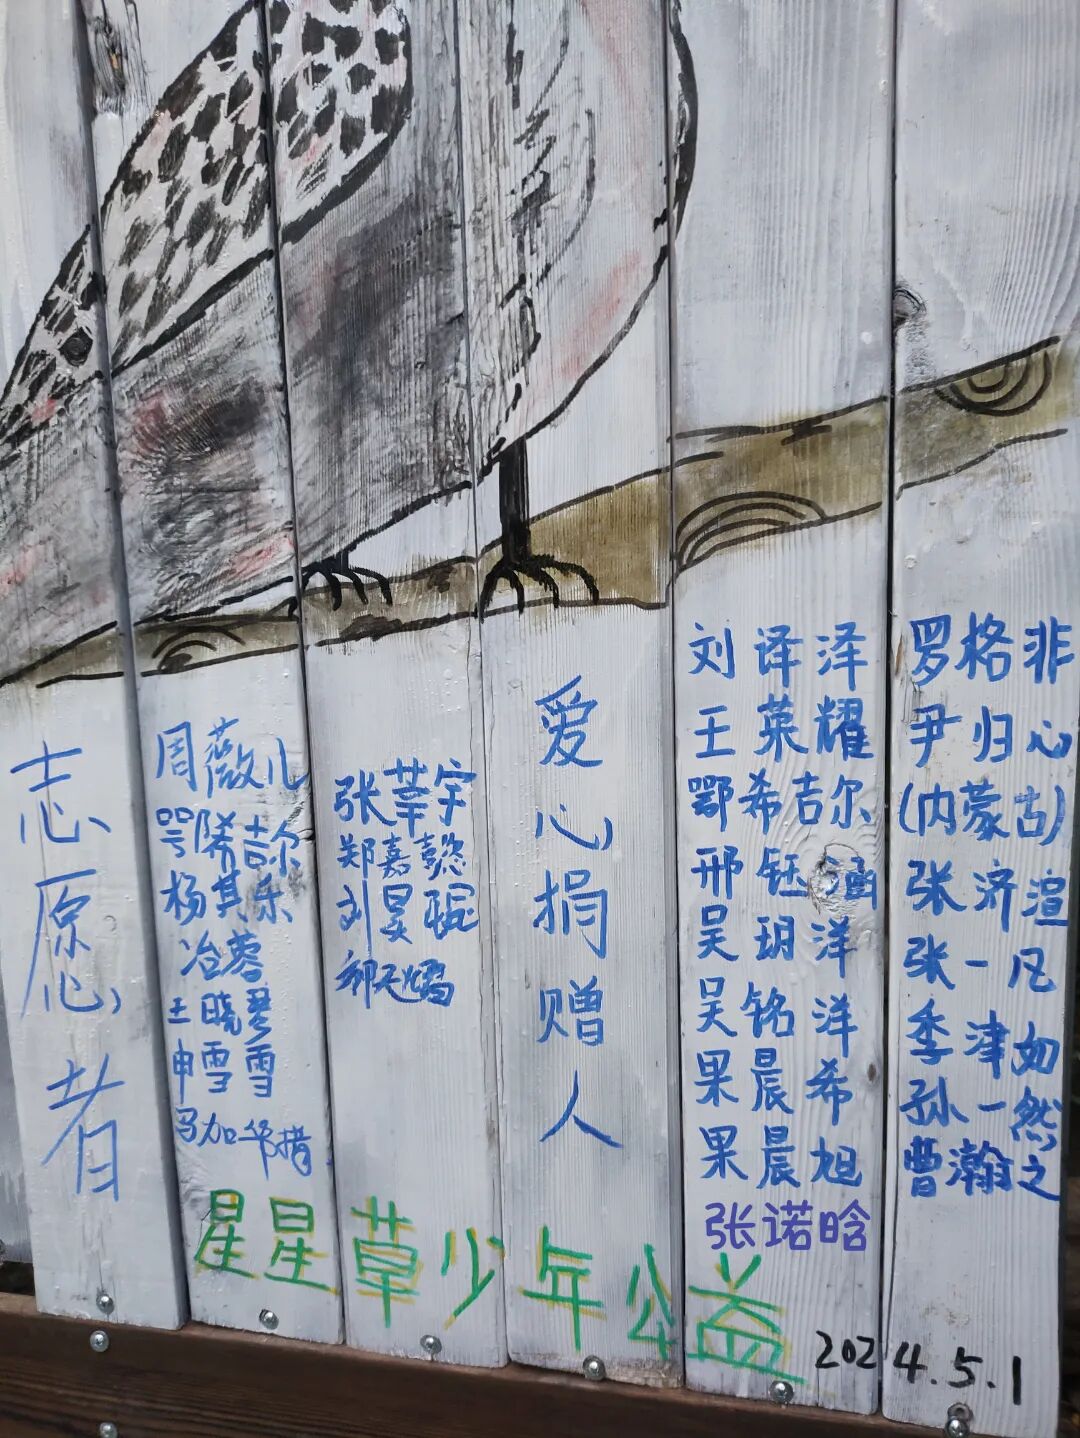 志愿者
周薇儿
鄂希吉尔
杨其乐
冶蓉
王晓琴
申雪雪
马加华措
张莘宇
郑嘉懿
刘昊聪
爱心捐赠人
刘译泽
王莱耀
鄂希吉尔
邢钰涵
吴玥洋
吴铭洋
果晨希
果晨旭
张诺晗
罗格非
尹归心
(内蒙古)
张济渲
张一凡
季津如
孙一然
曹瀚之
星星草少年公益
2024.5.1